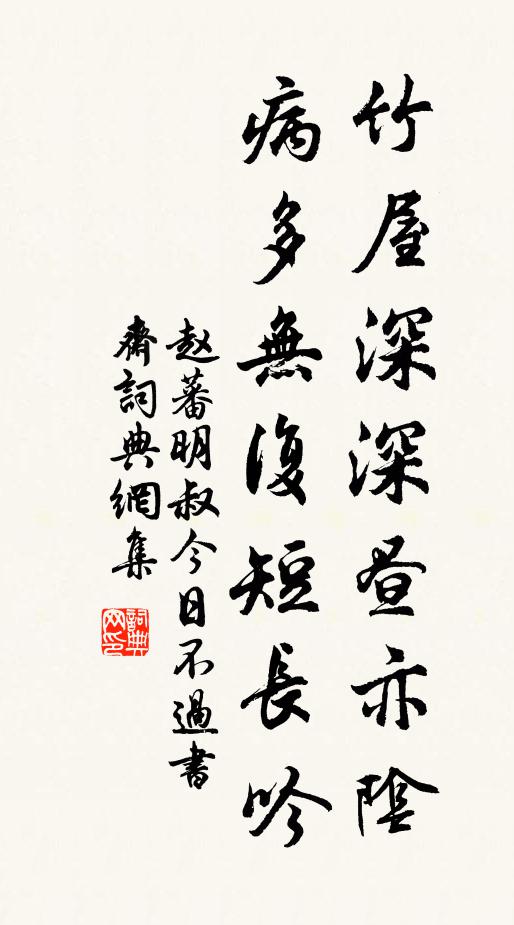 竹屋深深昼亦陰
病多無復短長吟
赵蕃明叔今日不過書
齋詞典網集
詞典網印